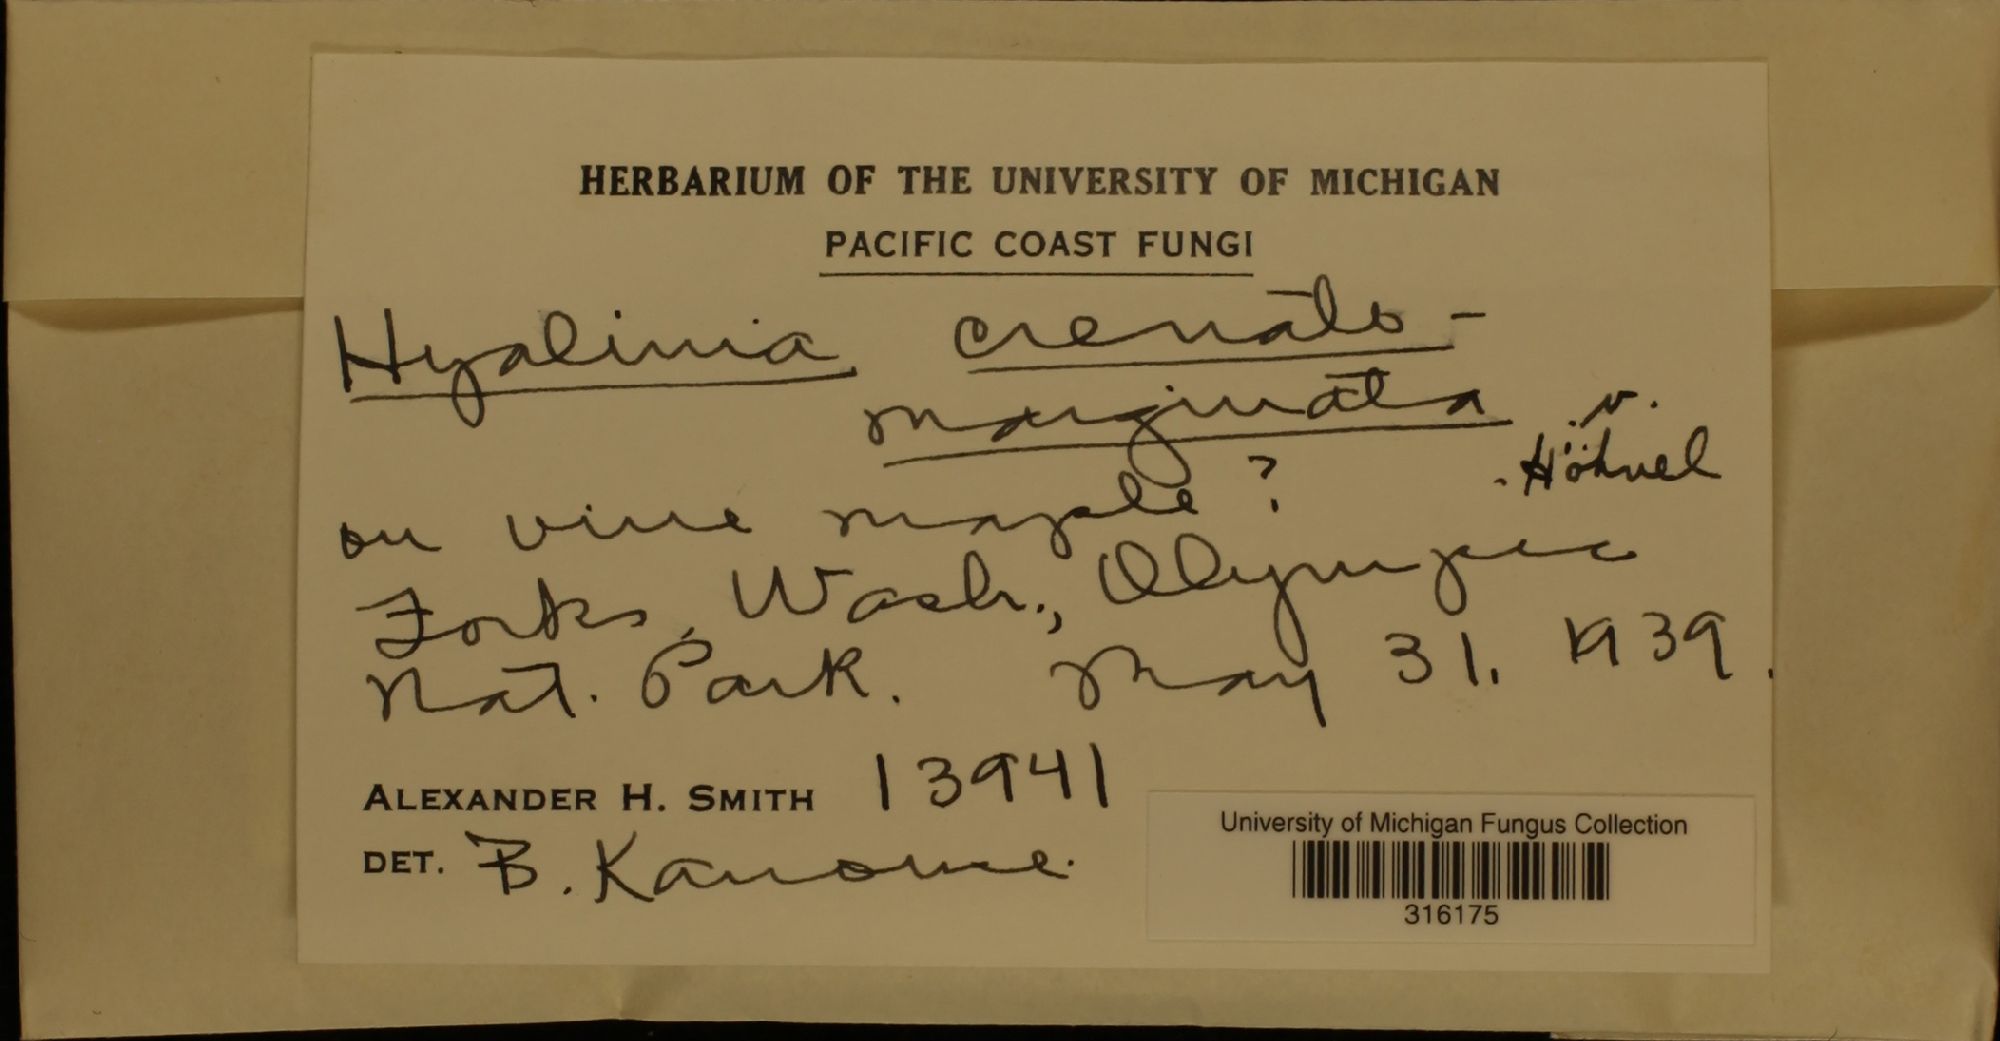 HERBARIUM OF THE UNIVERSITY OF MICHIGAN
PACIFIC COAST FUNGI
Hyalinia crenato-
marginata v.
Höhnel
on vine maple ?
Forks, Wash., Olympic
Nat. Park. May 31. 1939.
ALEXANDER H. SMITH 13941
DET. B. Kanouse.
University of Michigan Fungus Collection
316175